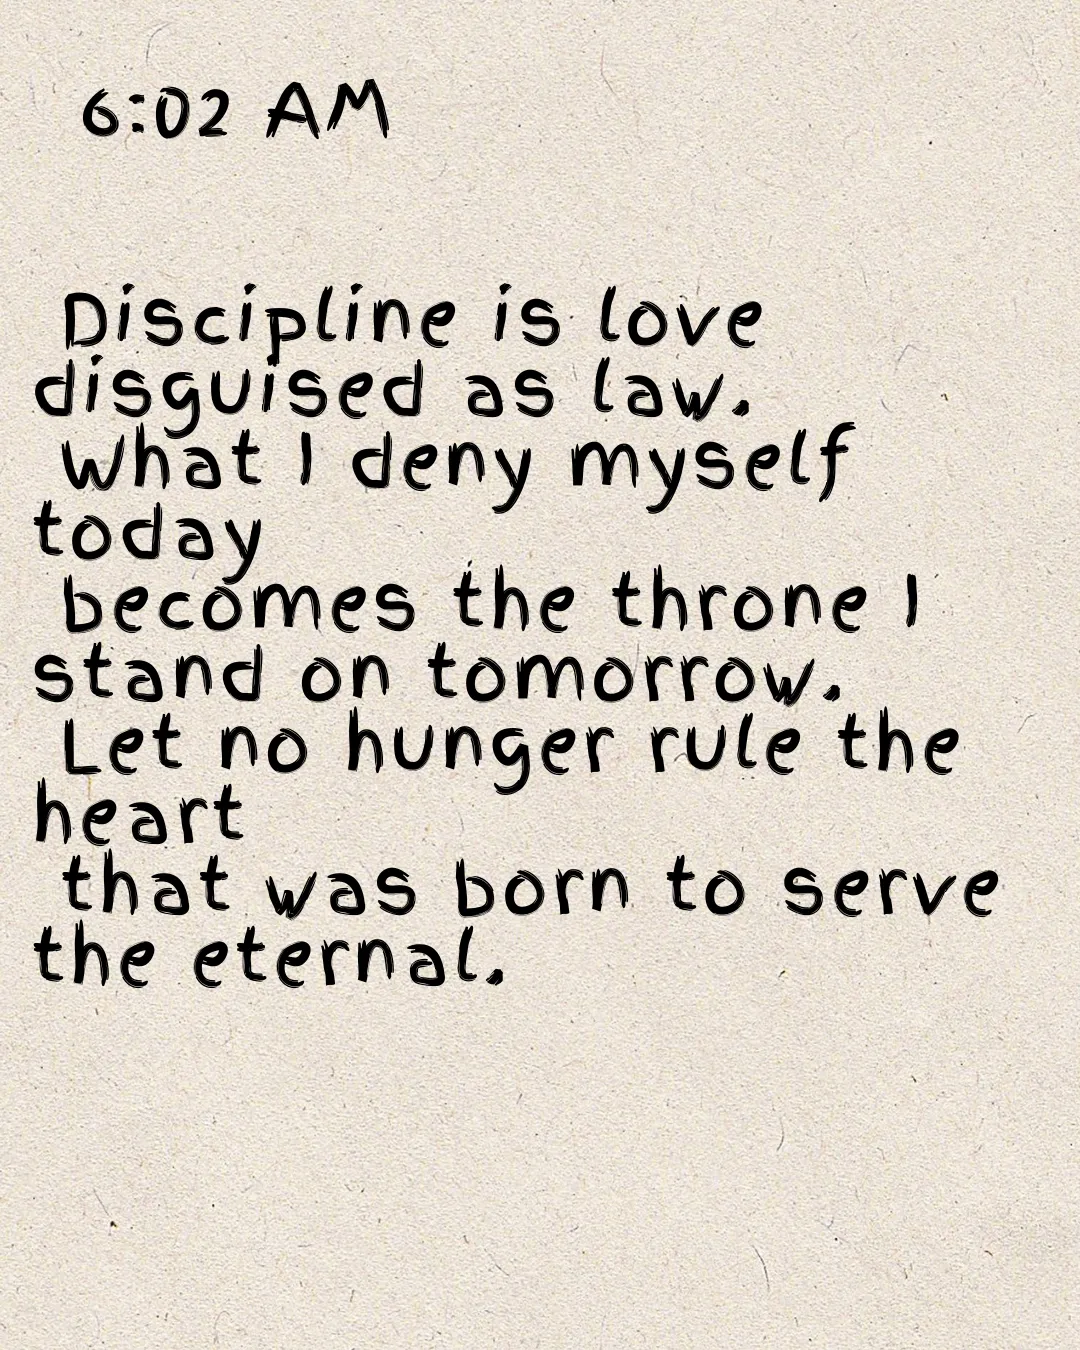 6:02 AM
Discipline is love
disguised as law.
What I deny myself
today
becomes the throne I
stand on tomorrow.
Let no hunger rule the
heart
that was born to serve
the eternal.